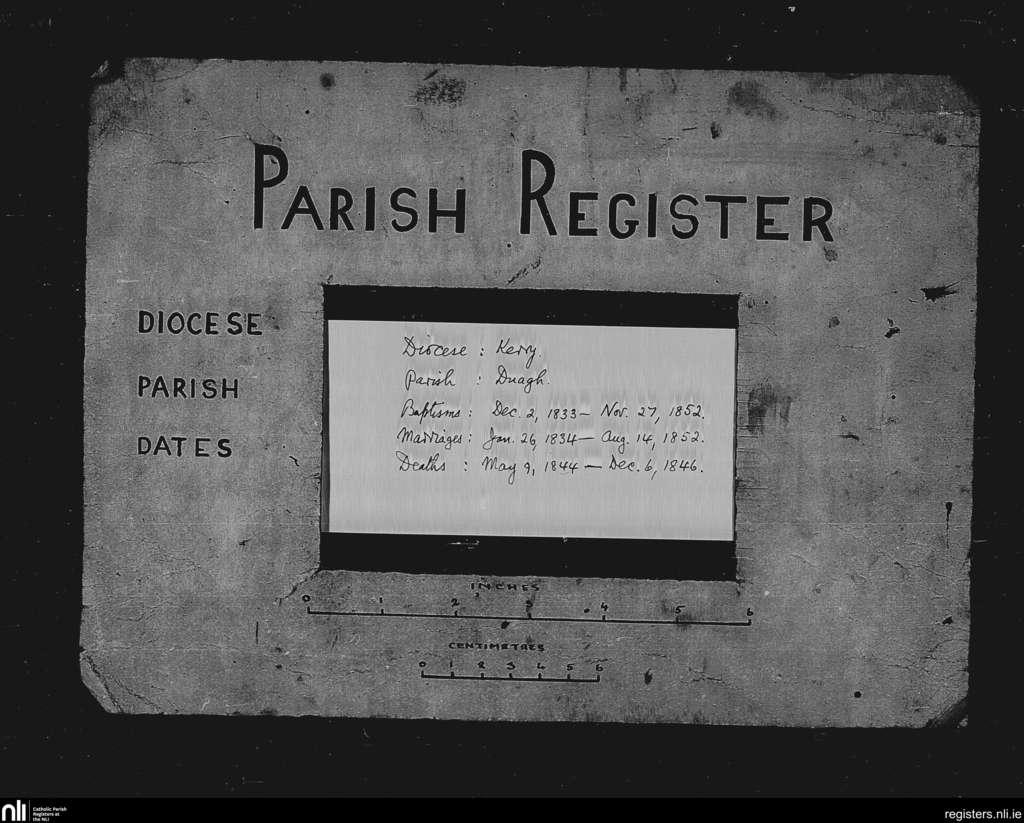 PARISH REGISTER
DIOCESE
PARISH
DATES
Diocese : Kerry.
Parish : Duagh.
Baptisms : Dec. 2, 1833 – Nov. 27, 1852.
Marriages : Jan. 26, 1834 – Aug. 14, 1852.
Deaths : May 9, 1844 – Dec. 6, 1846.
INCHES
0 1 2 3 4 5 6
CENTIMETRES
0 1 2 3 4 5 6
nli Catholic Parish
Registers at
the NLI
registers.nli.ie